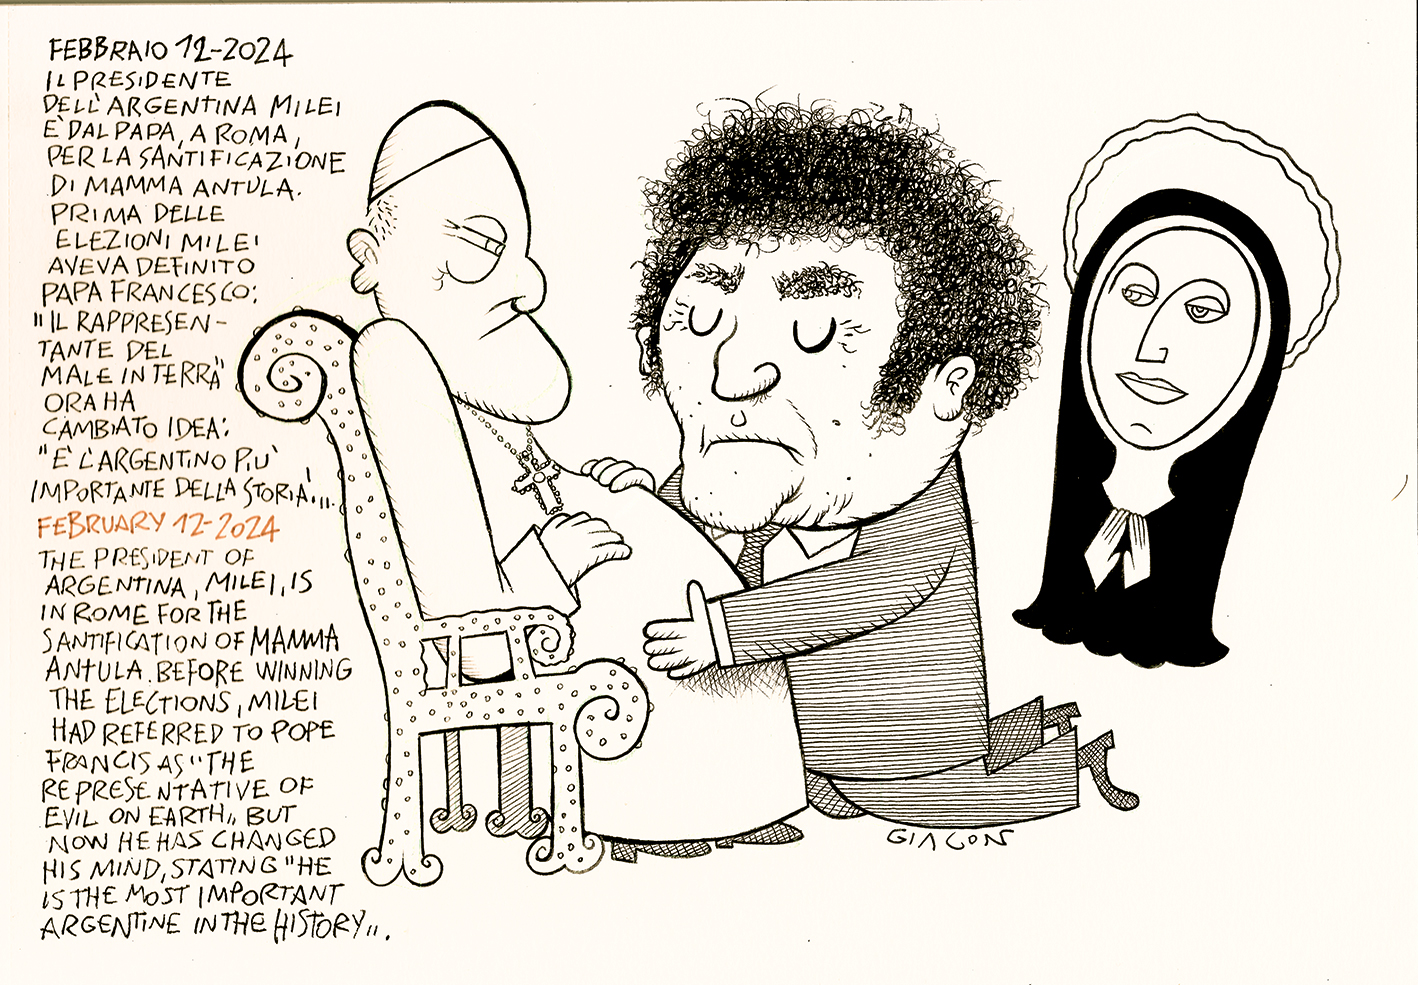 FEBBRAIO 12-2024
IL PRESIDENTE
DELL'ARGENTINA MILEI
E' DAL PAPA, A ROMA,
PER LA SANTIFICAZIONE
DI MAMMA ANTULA.
PRIMA DELLE
ELEZIONI MILEI
AVEVA DEFINITO
PAPA FRANCESCO:
"IL RAPPRESEN-
TANTE DEL
MALE IN TERRA"
ORA HA
CAMBIATO IDEA:
"E' L'ARGENTINO PIU'
IMPORTANTE DELLA STORIA"...
FEBRUARY 12-2024
THE PRESIDENT OF
ARGENTINA, MILEI, IS
IN ROME FOR THE
SANTIFICATION OF MAMMA
ANTULA. BEFORE WINNING
THE ELECTIONS, MILEI
HAD REFERRED TO POPE
FRANCIS AS "THE
REPRESENTATIVE OF
EVIL ON EARTH,, BUT
NOW HE HAS CHANGED
HIS MIND, STATING "HE
IS THE MOST IMPORTANT
ARGENTINE IN THE HISTORY,,.
GIACON